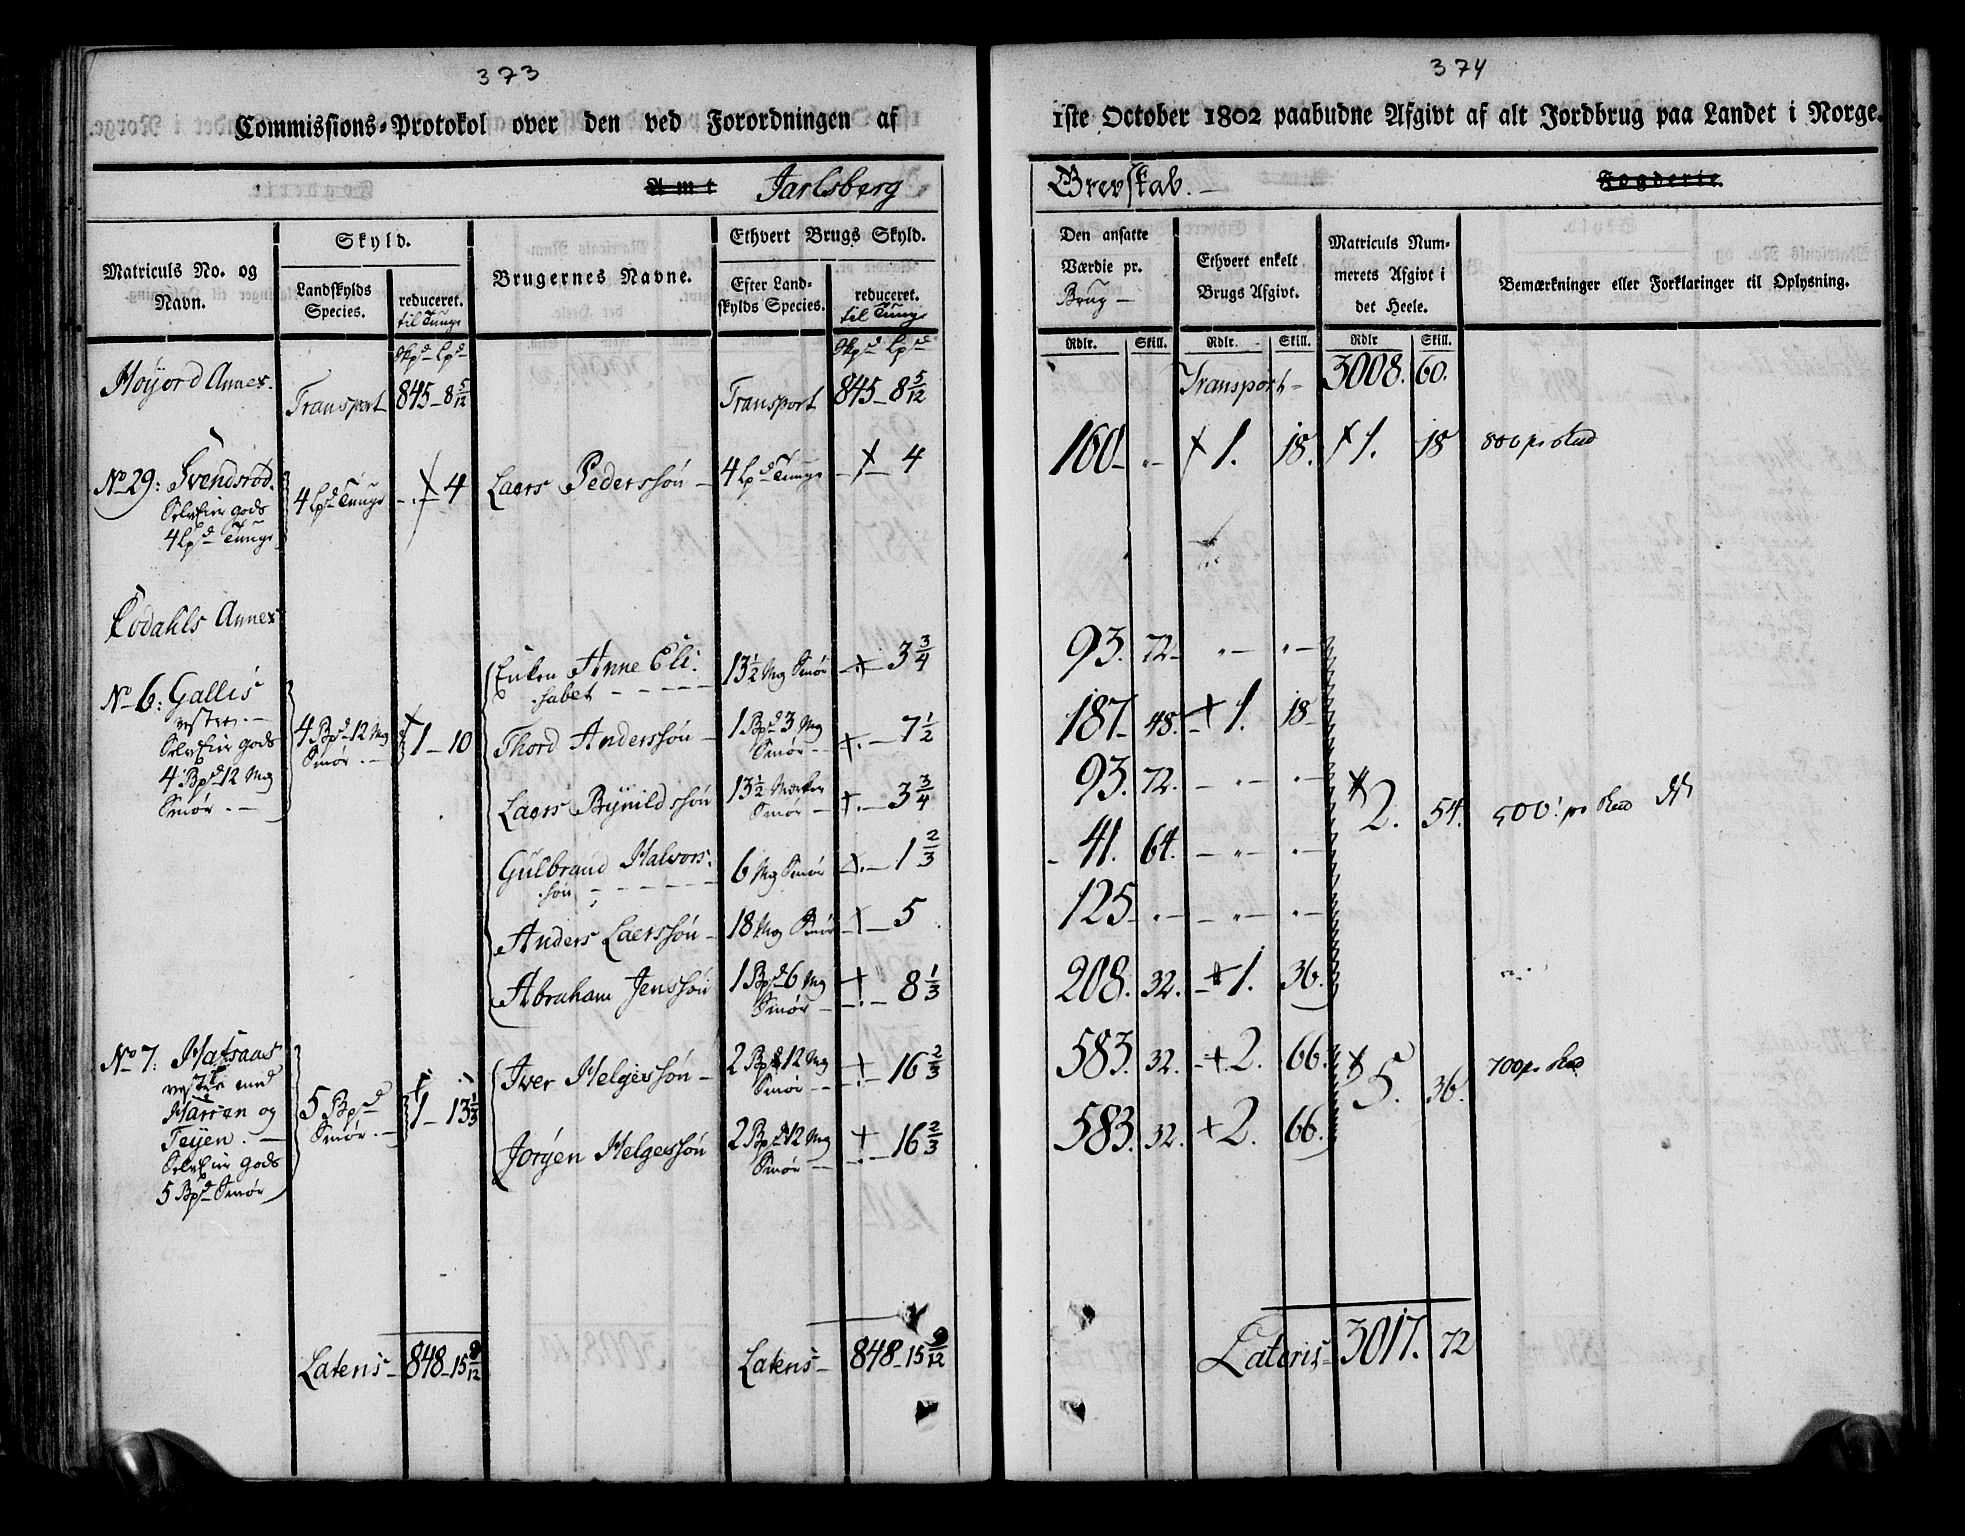 373
Commissions-Protokol over den ved Forordningen af
Amt Jarlsberg
Matriculs No. og Navn.
Skyld.
Landskylds Species.
reduceret. til Tunge
Brugernes Navne.
Ethvert Brugs Skyld.
Efter Landskylds Species.
reduceret. til Tunge
Skpd Lpd
Skpd Lpd
Høyord Annex.
Transport 845 - 8 5/12
Transport 845 - 8 5/12
No 29: Svendsrød.
Selveier gods
4 Lpd Tunge
4 Lpd Tunge - 4
Laers Pederssøn - 4 Lpd Tunge - 4
Fodahls Annex
No 6: Gallis
vestre. -
Selveier gods
4 Bpd 12 Mg
Smør. -
4 Bpd 12 Mg Smør. - 1 - 10
Enken Anne Elisabet - 13 1/2 Mg Smør - 3 3/4
Thord Anderssøn - 1 Bpd 3 Mg Smør - 7 1/2
Laers Bynildssøn 13 1/2 Merker Smør - 3 3/4
Gulbrand Halvorssøn 6 Mg Smør - 1 2/3
Anders Laerssøn - 18 Mg Smør - 5
Abraham Jenssøn 1 Bpd 6 Mg Smør - 8 1/3
No 7:
vestre med
og
Selveier Gods
5 Bpd Smør
5 Bpd Smør. - 1 - 13 1/3
Iver Helgessøn - 2 Bpd 12 Mg Smør - 16 2/3
Jørgen Helgessøn 2 Bpd 12 Mg Smør - 16 2/3
Latens - 848 - 15 9/12
Latens - 848 - 15 9/12
374
1ste October 1802 paabudne Afgivt af alt Jordbrug paa Landet i Norge.
Grevskab. - Fogderie.
Den ansatte Værdie pr. Brug -
Ethvert enkelt Brugs Afgivt.
Matriculs Nummerets Afgivt i det Heele.
Bemærkninger eller Forklaringer til Oplysning.
Rdlr. Skill. Rdlr. Skill. Rdlr Skill.
Transport - 3008. 60.
160 - " - 1. 18. 1. 18 800 pr Skd
93. 72 - " - " -
187 - 48. - 1. 18 -
93. 72. - " - " -
2. 54. 500 pr Skd
41. 64. - " - " -
125 - " - - " - " -
208. 32. - 1. 36.
583. 32. - 2. 66.
5. 36. 700 pr Skd
583. 32. 2. 66.
Lateris - 3017. 72